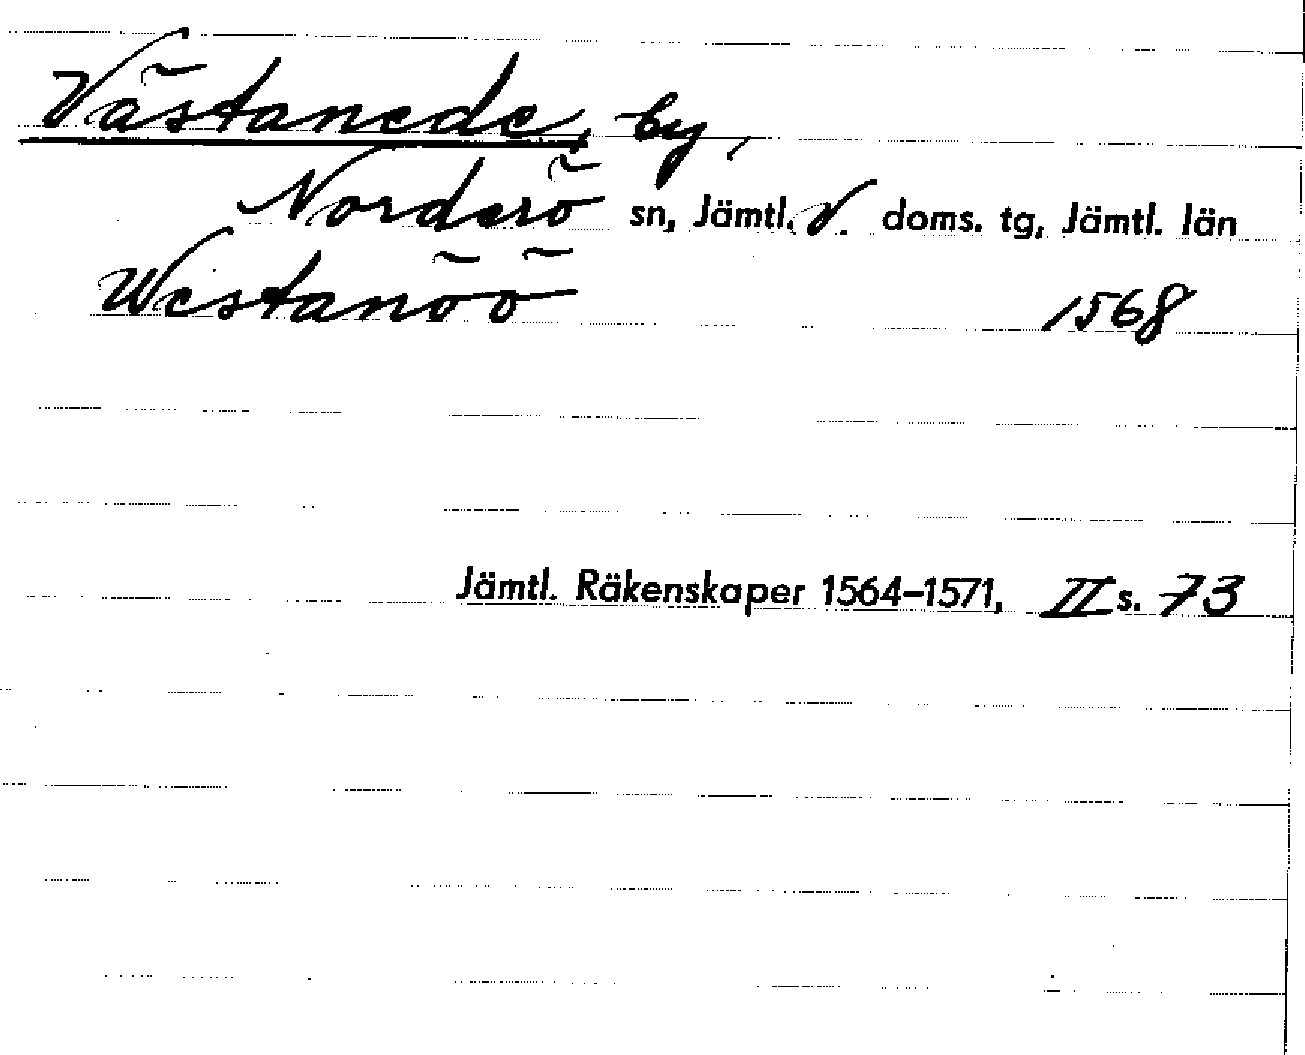 Västanede, by,
Norderö sn, Jämtl. V. doms. tg, Jämtl. län
Westanöö 1568
Jämtl. Räkenskaper 1564–1571, II s. 73